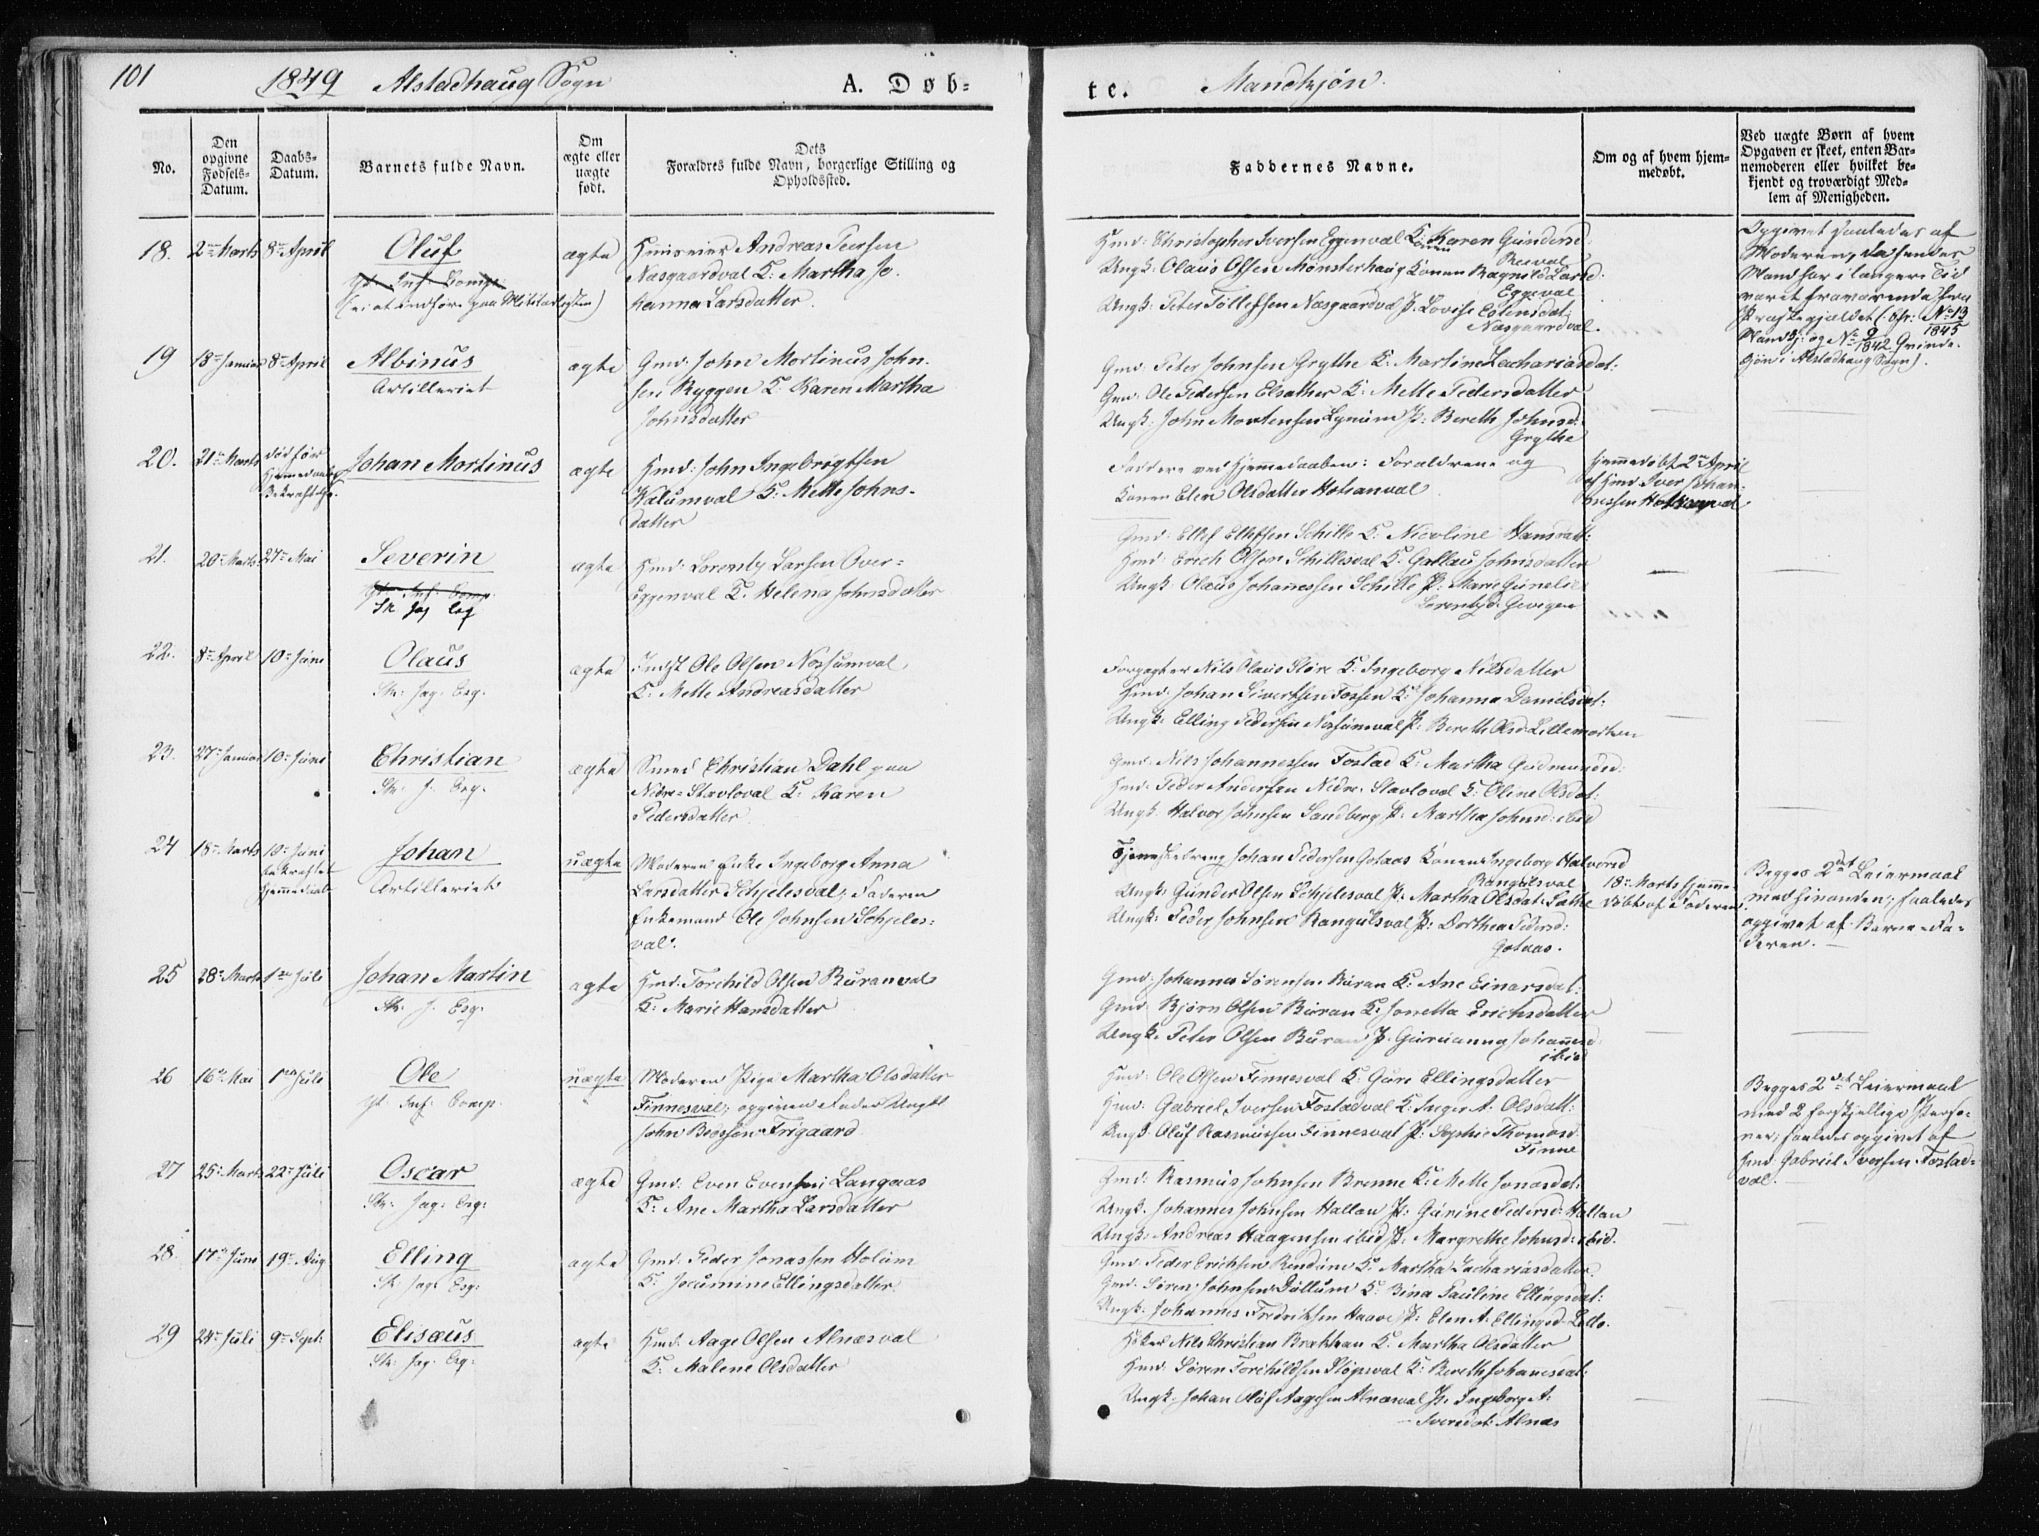 101
1849 Alstadhaug Sogn
A. Døb-
te.
Mandkjøn.
No.
Den opgivne Fødsels-Datum.
Daabs-Datum.
Barnets fulde Navn.
Om ægte eller uægte født.
Dets Forældres fulde Navn, borgerlige Stilling og Opholdssted.
Faddernes Navne.
Om og af hvem hjemmedøbt.
Ved uægte Børn af hvem Opgaven er skeet, enten Barnemoderen eller hvilket bekjendt og troværdigt Medlem af Menigheden.
18. 2den Marts 8de April Oluf ægte Huusmd Andreas Peersen
Næsgaardval K: Martha Jo-
hanna Larsdatter.
Hmd: Christopher Iversen Eggenval Konen Karen Gundersd:
Resval
Ungk: Olaus Olsen Mønsterhaug Konen Ragnild Larsd:
Eggeval
Ungk: Peter Tollefsen Næsgaardval P. Lovise Estensdat:
Næsgaardval.
Opgivet saaledes af
Moderen, da hendes
Mand har i længere Tid
været fraværende fra
Præstegjældet (cfr: No 13/1845
Mandkj: og No 9/1842 Qvinde-
kjøn i Alstadhaug Sogn).
19 18de Januar 8de April Albinus ægte Gmd: John Mortinus John-
Artilleriet
sen Ryggen K: Karen Martha
Johnsdatter
Gmd: Peter Johnsen Grythe K: Martine Zachariasdat:
Gmd: Ole Pedersen Elsather K: Mette Pedersdatter
Ungk: John Mortensen Lynum P: Bereth Johnsd:
Grythe
20. 21de Marts død før
Hjemmedaabens
Bekræftelse.
Johan Martinus ægte Hmd: John Ingebrigtsen
Kalumval K: Mette Johns-
datter
Faddere ved Hjemmedaaben: Forældrene og
Konen Elen Olsdatter Hotranval
Hjemmedøbt 2den April
af Hmd Iver Johan-
nessen Hotranval
21. 20de Marts 27de Mai Severin ægte Hmd: Lorents Larsen Over-
Str Jag Esq
Eggenval K. Helena Johnsdatter
Gmd: Ellef Ellefsen Schille K. Nicoline Hansdatt:
Hmd: Erich Olsen Schillesval K. Gollau Johnsdatter
Ungk: Olaus Johannessen Schille P: Marie Gunelie
Lorentsd: Gevigen
22. 8de April 10de Juni Olaus ægte Indst Ole Olsen Nossumval
Str: Jag: Esq.
K. Mette Andreasdatter
Forpagter Nils Olaus Støre K: Ingeborg Nilsdatter
Hmd: Johan Sivertsen Fossen K: Johanna Danielsdat:
Ungk: Elling Pedersen Nossumval P: Bereth Olsd: Lillemarken
23. 27de Januar 10de Juni Christian ægte Smed Christian Dahl paa
Str: J. Esq.
Nedre-Stavloval K: Karen
Pedersdatter
Gmd: Nils Johannessen Fostad K: Martha Gudmundsd:
Hmd: Peder Andersen Nedre-Stavloval K: Oline Olsdat:
Ungk: Halvor Johnsen Sandberg P: Martha Johnsd: ibid
24 18de Marts 10de Juni
bekræftet
Hjemmedaab
Johan
Artilleriet
uægte Moderen Enke Ingeborg Anna
Larsdatter Schjelesval; Faderen
Enkemand Ole Johnsen Schjeles-
val.
Tjenestedreng Johan Pedersen Gotaas Konen Ingeborg Halvorsd
Rangulsval
Ungk: Gunder Olsen Schjelesval P: Martha Olsdat:
Ungk: Peder Johnsen Rangulsval P: Dorthea Pedersd:
Gotaas.
18de Marts hjemme-
døbt af Faderen
Begges 2det Leiermaal
med hinanden; saaledes
opgivet af Barne-fa-
deren.
25 28de Marts 1ste Juli Johan Martin ægte Hmd: Torchild Olsen Buranval
Str. J. Esq.
K: Marie Hansdatter
Gmd: Johannes Sørensen Buran K: Ane Einarsdat:
Gmd: Bjørn Olsen Buran K: Jonetta Erichsdatter
Ungk: Peter Olsen Buran P. Guruanna Johannesd:
ibid
26 16de Mai 1ste Juli Ole uægte Moderen Pige Martha Olsdatter
Inf. Comp.
Finnesval; opgiven Fader Ungkl
John Beresen Frigaard
Hmd: Ole Olsen Finnesval K: Gure Ellingsdatter
Hmd: Gabriel Iversen Fostadval K: Inger A: Olsdatt:
Ungk: Oluf Rasmussen Finnesval P: Sophie Thomasd:
Finne
Begges 2det Leiermaal
med 2 forskjellige Perso-
ner; saaledes opgivet af
Hmd: Gabriel Iversen Fostad-
val.
27 25de Marts 22de Juli Oscar ægte Gmd: Even Evensen Langaas
Str: Jag: Esq:
K: Ane Martha Larsdatter
Gmd: Rasmus Johnsen Brenne K: Mette Jonasdat:
Ungk: Johannes Johnsen Hallan P: Gurine Pedersd: Hallan
Ungk: Andreas Haagensen ibid P: Margrethe Johnsd: ibid.
28. 17de Juni 19de Aug Elling ægte Gmd: Peder Jonassen Holum
Str Jag: Esq:
K: Jocumine Ellingsdatter
Gmd: Peder Erichsen Rinduna K: Martha Zachariasdatter
Gmd: Søren Johnsen Dullum K: Bina Pauline Ellingsdat:
Ungk: Johannes Fredriksen Haave P: Elen A: Ellingsd:
29 24de Juli 9de Sept: Elisæus ægte Hmd: Aage Olsen Alnæsval
Str: Jag: Esq:
K: Malene Olsdatter
Nils Christian Brakhan K: Martha Olsdatter
Hmd: Søren Torchildsen K: Bereth Johanesdat:
Ungk: Johan Oluf Aagesen Alnæsval P: Ingeborg A:
Iversdat: Alnæs